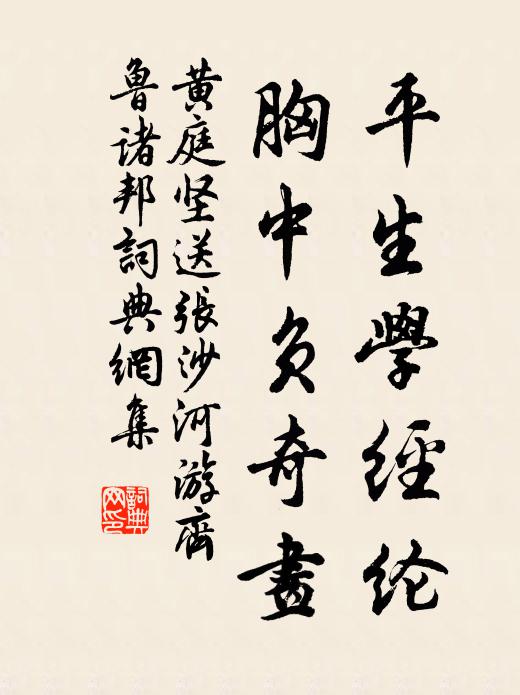 平生學經纶
胸中負奇畫
黃庭坚送張沙河游齊
魯诸邦詞典網集
詞典网印